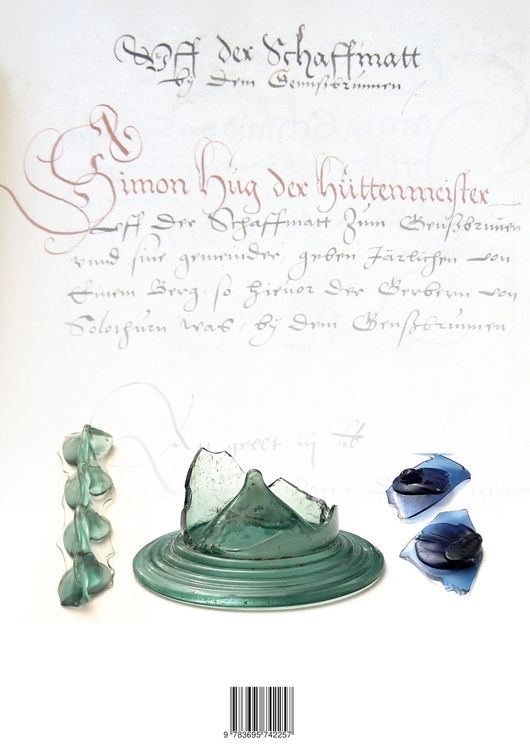 Uff der Schaffmatt
by dem Geinßbrunnen
Simon Hug der Hüttenmeister
Uff der Schaffmatt Zum Geinßbrunen
vnnd sine gemeinder, geben Järlichen von
Einem Berg, so hieuor der Gerbern von
Solothurn was, by dem Geinßbrunnen,
An gellt iij lb
9 783695 742257